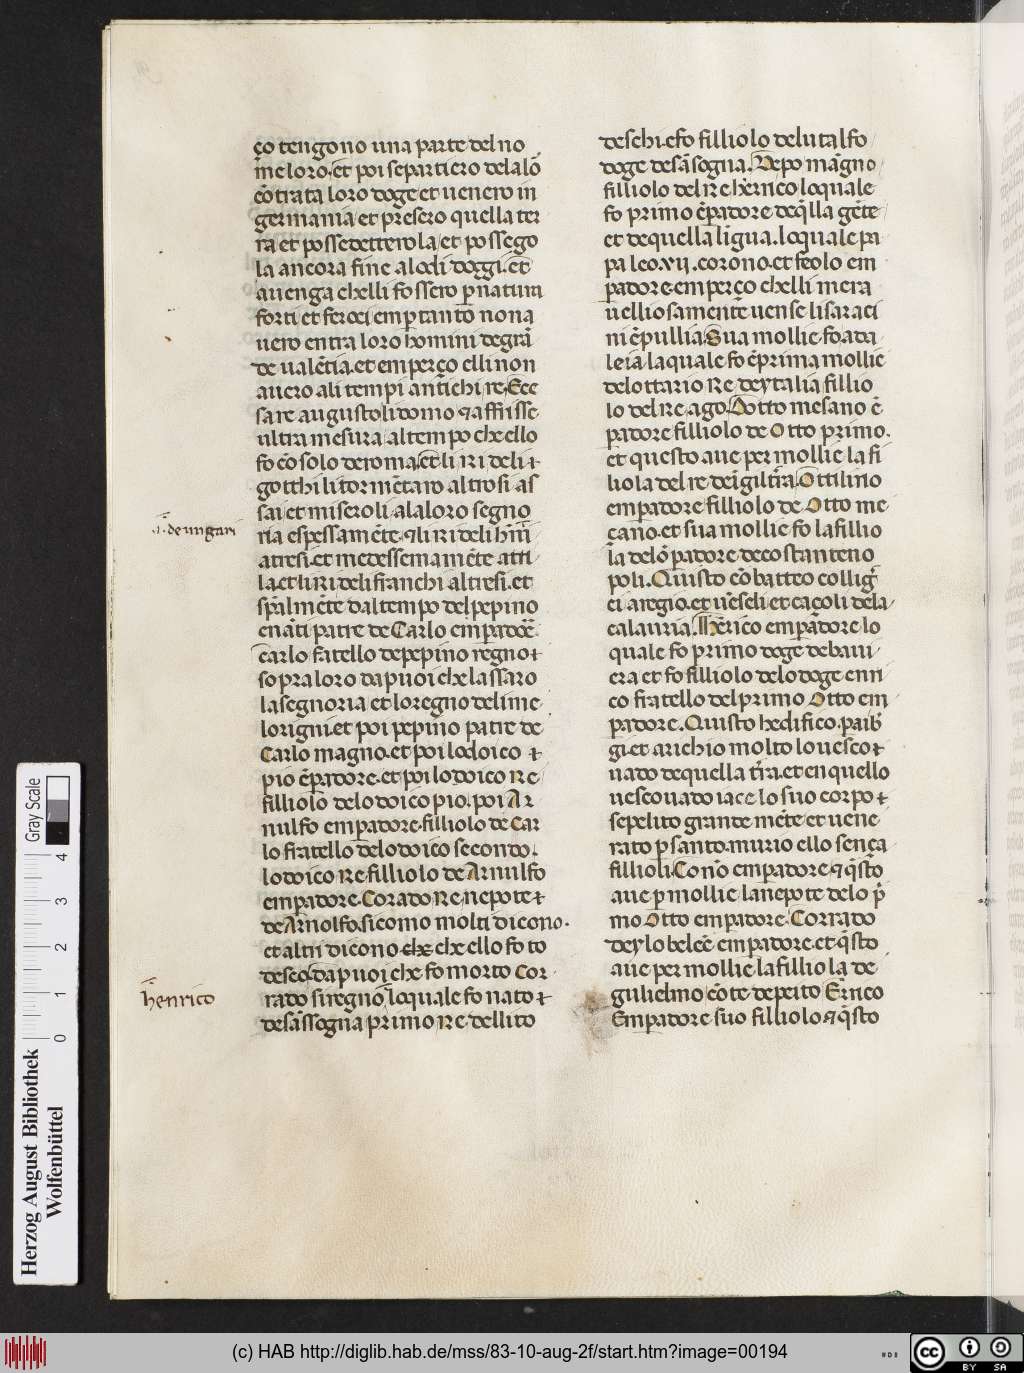 ço tengono una parte del no
me loro. et poi se partiero delalõ
cõtrata loro doge et uenero in
germania et presero quella ter
ra et possedettero la et possego
la ancora fine alo di doggi. et
auenga chelli fossero p natura
forti et feroci emp tanto non a
uero entra loro homini de grã
de ualẽtia. et emperço elli non
auero ali tempi antichi re. Ece
sare augusto li domo ⁊ affisse
ultra mesura al tempo che ello
fo cõsolo de roma. et li ri deli
gotthi li tormẽtaro altrosi as
sai et miseroli ala loro segno
ria espessamẽte. ⁊ li ri deli hũĩ
atresi. et medessemamẽte atti
la. et li ri deli franchi altresi. et
spãlmẽte dal tempo del pepino
enãti patre de Carlo empadoẽ.
carlo fatello de pepino regno
sopra loro da puoi che lassaro
la segnoria et lo regno deli me
lorigni. et poi pepino patre de
Carlo magno. et poi lodoico
pio ẽpadore. et poi lodoico Re
filliolo de lodoico pio. poi Ar
nulfo empadore. filliolo de Car
lo fratello de lodoico secondo.
lodoico Re filliolo de Arnulfo
empadore. Corado Re nepote
de Arnolfo. sicomo molti dicono.
et altri dicono che che ello fo to
desco. da puoi che fo morto Cor
rado si regno loquale fo nato
de sãssogna primo Re delli to
.i. de ungari
henrico
deschi. e fo filliolo de lutalfo
doge de sãsogna. Depo mãgno
filliolo del re hẽrrico loquale
fo primo ẽpadore de q̃lla gẽte
et de quella ligua. loquale pa
pa leo. vii. corono. et feolo em
padore. emperço chelli mera
uelliosamente uense li saraci
ni ẽ pullia. Sua mollie fo ada
leia. laquale fo ẽ prima mollie
de lottario Re de ytalia fillio
lo del re ago. Dotto mesano ẽ
padore filliolo de Otto primo.
et questo aue per mollie la fi
liola del re de ĩgiltr̃a. Ottilino
emperadore filliolo de Otto me
cano. et sua mollie fo la fillio
la delo padore de costanteno
poli. Quisto cõbatteo collig̃
ci aregio. et ueseli et caçoli dela
calauria. Herico emparadore lo
quale fo primo doge de baui
era et fo filliolo de lo doge enri
co fratello del primo Otto em
padore. Quisto hedifico. paib̃
gi. et arichio molto lo uesco
uado de quella tr̃a. et en quello
uescouado iace lo suo corpo
sepelito grande mẽte et uene
rato p santo. murio ello sença
fillioli. Cono empadore. ⁊ q̃sto
aue p mollie la nepote delo p̃
mo Otto empadore. Corrado
de y lo belee empadore. et q̃sto
aue per mollie la filliola de
gulielmo cõte de peito Errico
Empadore. suo filliolo. ⁊ q̃sto
Herzog August Bibliothek
Wolfenbüttel
Gray Scale
0 1 2 3 4
(c) HAB http://diglib.hab.de/mss/83-10-aug-2f/start.htm?image=00194
cc BY SA